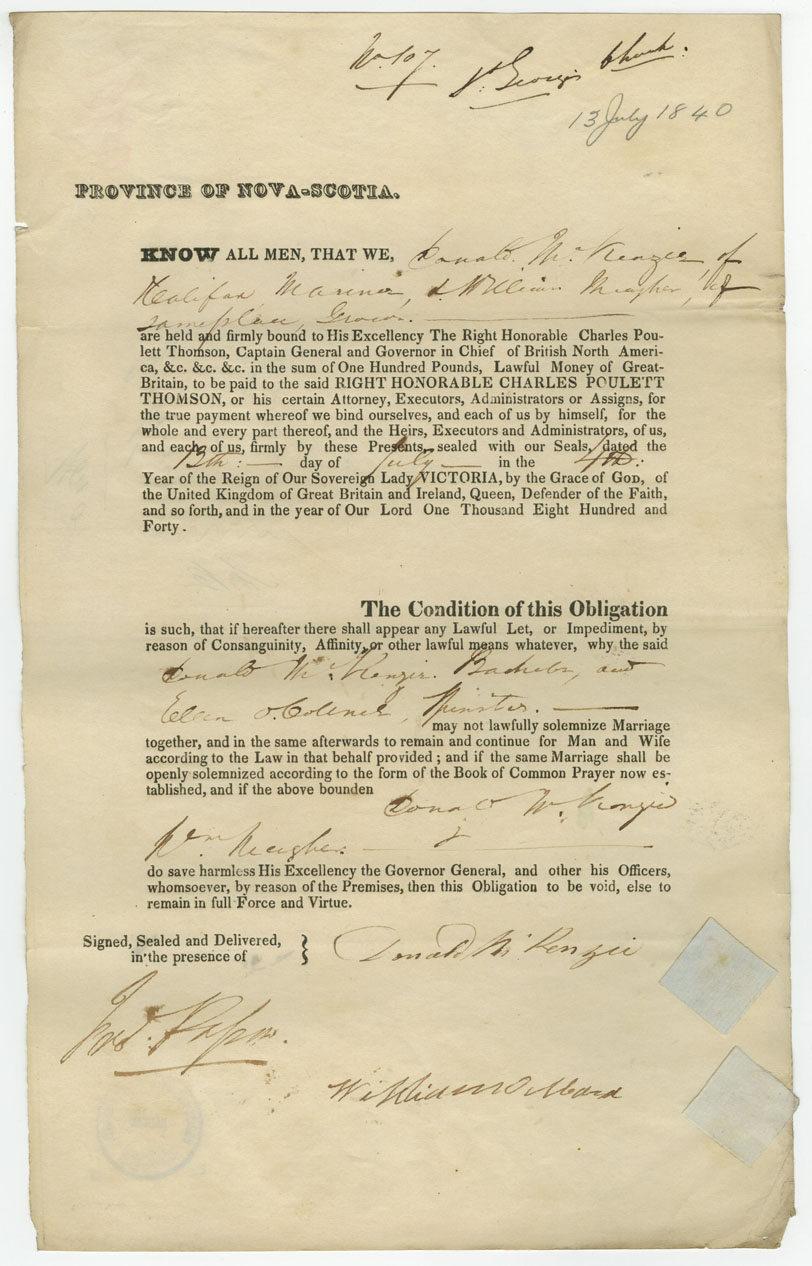 No. 107. St. George's Church.
13 July 1840
PROVINCE OF NOVA-SCOTIA.
KNOW ALL MEN, THAT WE, Donald McKenzie of
Halifax Mariner, & William Meagher, of
same place, Grocer.
are held and firmly bound to His Excellency The Right Honorable Charles Pou-
lett Thomson, Captain General and Governor in Chief of British North Ameri-
ca, &c. &c. &c. in the sum of One Hundred Pounds, Lawful Money of Great-
Britain, to be paid to the said RIGHT HONORABLE CHARLES POULETT
THOMSON, or his certain Attorney, Executors, Administrators or Assigns, for
the true payment whereof we bind ourselves, and each of us by himself, for the
whole and every part thereof, and the Heirs, Executors and Administrators, of us,
and each of us, firmly by these Presents, sealed with our Seals, dated the
13th: day of July in the 4th:
Year of the Reign of Our Sovereign Lady VICTORIA, by the Grace of GOD, of
the United Kingdom of Great Britain and Ireland, Queen, Defender of the Faith,
and so forth, and in the year of Our Lord One Thousand Eight Hundred and
Forty.
The Condition of this Obligation
is such, that if hereafter there shall appear any Lawful Let, or Impediment, by
reason of Consanguinity, Affinity, or other lawful means whatever, why the said
Donald McKenzie. Bachelor, and
Ellen Spinster.
may not lawfully solemnize Marriage
together, and in the same afterwards to remain and continue for Man and Wife
according to the Law in that behalf provided; and if the same Marriage shall be
openly solemnized according to the form of the Book of Common Prayer now es-
tablished, and if the above bounden
Donald McKenzie
Wm Meagher
do save harmless His Excellency the Governor General, and other his Officers,
whomsoever, by reason of the Premises, then this Obligation to be void, else to
remain in full Force and Virtue.
Signed, Sealed and Delivered,
in the presence of } Donald McKenzie
William